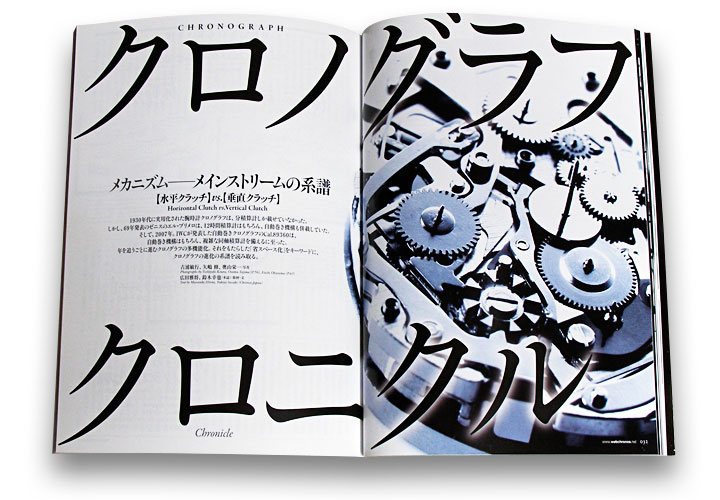 CHRONOGRAPH
クロノグラフ
メカニズム——メインストリームの系譜
【水平クラッチ】vs.【垂直クラッチ】
Horizontal Clutch vs. Vertical Clutch
1930年代に実用化された腕時計クロノグラフは、分積算計しか載せていなかった。
しかし、69年発表のゼニスのエル・プリメロは、12時間積算計はもちろん、自動巻き機構も搭載していた。
そして、2007年、IWCが発表した自動巻きクロノグラフのCal.89360は、
自動巻き機構はもちろん、複雑な同軸積算計を備えるに至った。
年を追うごとに進むクロノグラフの多機能化。それをもたらした「省スペース化」をキーワードに、
クロノグラフの進化の系譜を読み取る。
クロニクル
Chronicle
www.webchronos.net 031